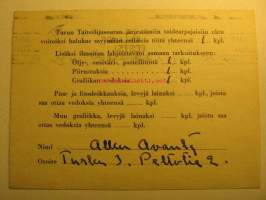 Turun Taiteilijaseuran järjestämiin taidearpajaisiin olen
voitoiksi halukas myymään teoksia töitä yhteensä 1 kpl.
Lisäksi ilmoitan lahjoittavani samaan tarkoitukseen:
Öljy-, vesiväri-, pastellitöitä 1 kpl.
Piirustuksia 1 kpl.
Grafiikan vedoksia 1 kpl.
Puu- ja linoleikkauksia, levyjä lainaksi kpl, joista
saa ottaa vedoksia yhteensä kpl.
Muu grafiikka, levyjä lainaksi kpl, joista saa ottaa
vedoksia yhteensä kpl.
Nimi Allen Avanto
Osoite Turku 3. Peltotie 2.